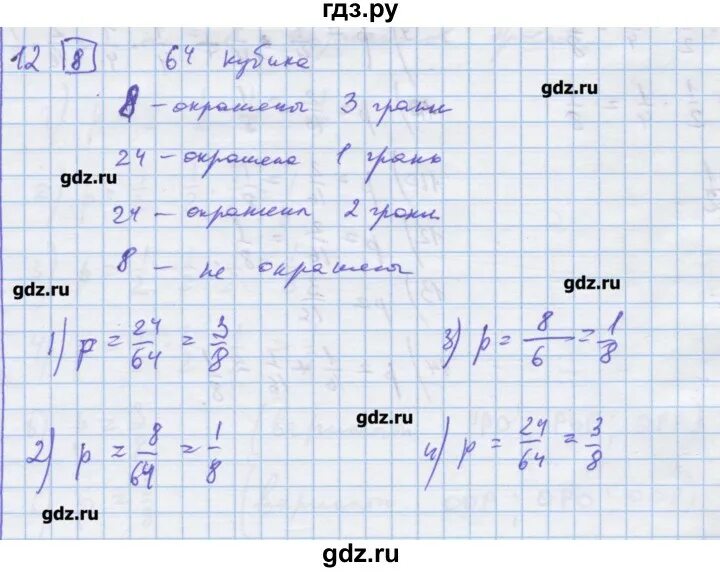 гдз.ру
12 8 64 кубика
gdz.ru
8 – окрашены 3 грани
24 – окрашена 1 грань
gdz.ru
24 – окрашены 2 грани
8 – не окрашены
gdz.ru
gdz.ru
1) p = 24/64 = 3/8
3) p = 8/6 = 1/8
gdz.ru
2) p = 8/64 = 1/8
4) p = 24/64 = 3/8
gdz.ru
gdz.ru